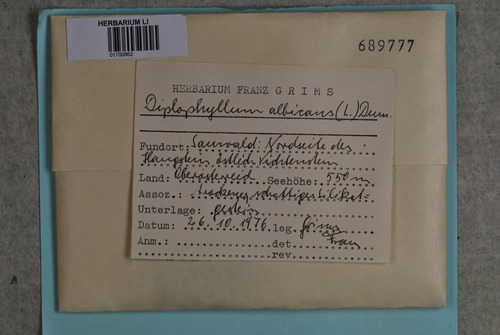 HERBARIUM LI
01700662
689777
HERBARIUM FRANZ GRIMS
Diplophyllum albicans (L.) Dum.
Fundort: Sauwald: Nordseite des
Haugstein östlich Vichtenstein
Land: Oberösterreich Seehöhe: 550 m
Assoz.: trockenes, schattiges Silikat-
Unterlage: gestein
Datum: 26.10.1976 leg. Grims
Anm.: det. Franz
rev.